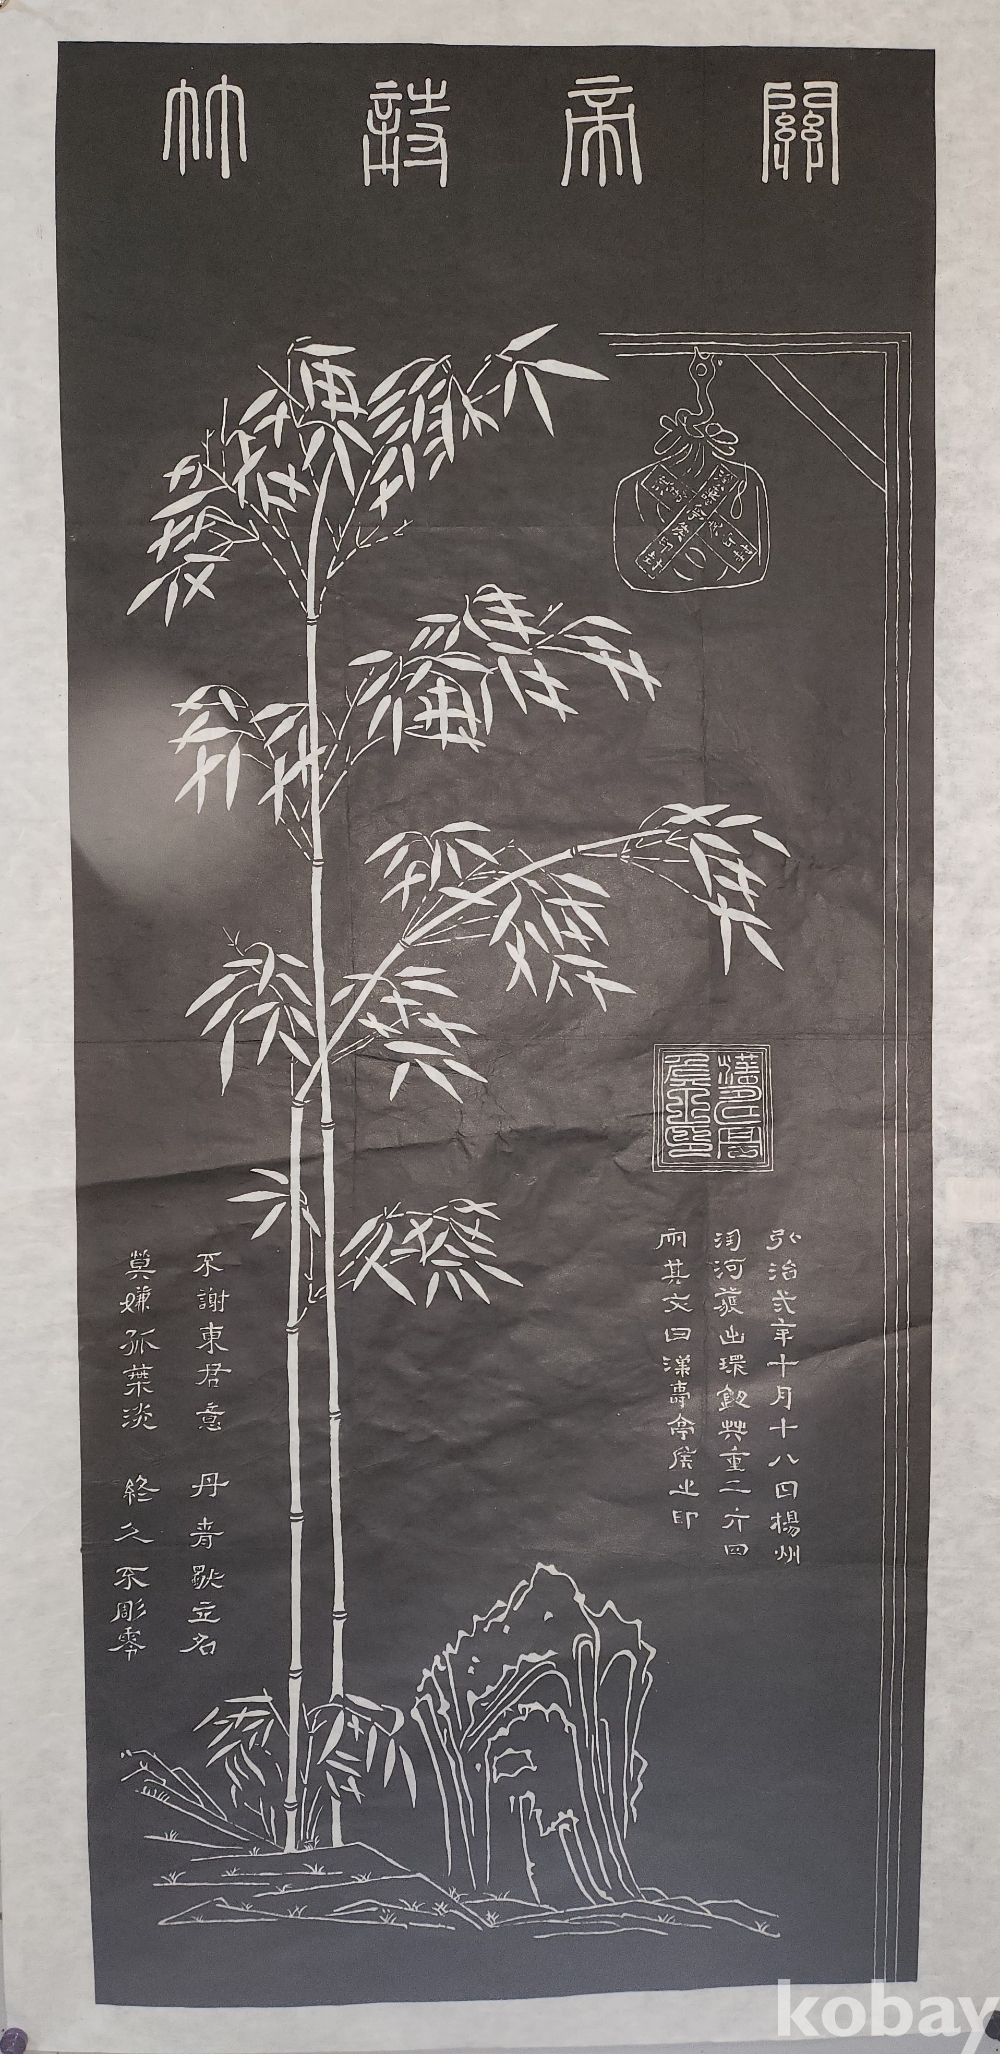 關帝詩竹
漢壽亭侯之印
弘治弍年十月十八日揚州
河發出環鈕共重二斤四
兩其文曰漢壽亭侯之印
不謝東君意 丹青獨立名
莫嫌孤葉淡 終久不彫零
kobay